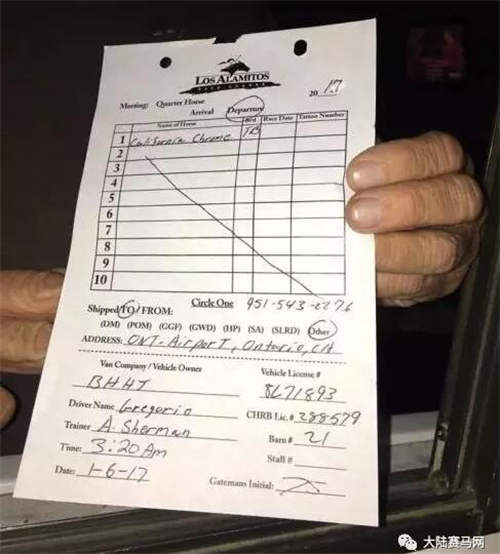 LOS ALAMITOS
RACE COURSE
20 17
Meeting: Quarter Horse
Arrival Departure
Name of Horse Brd Race Date Tattoo Number
1 California Chrome TB
2
3
4
5
6
7
8
9
10
Circle One 951-543-2276
Shipped TO / FROM:
(DM) (POM) (GGF) (GWD) (HP) (SA) (SLRD) Other
ADDRESS: ONT-Airport, Ontario, CA
Van Company / Vehicle Owner Vehicle License #
BHHT 8L71893
Driver Name Gregorio CHRB Lic.# 288579
Trainer A. Sherman Barn # 21
Time: 3:20 Am Stall #
Date: 1-6-17 Gatemans Initial:
大陆赛马网